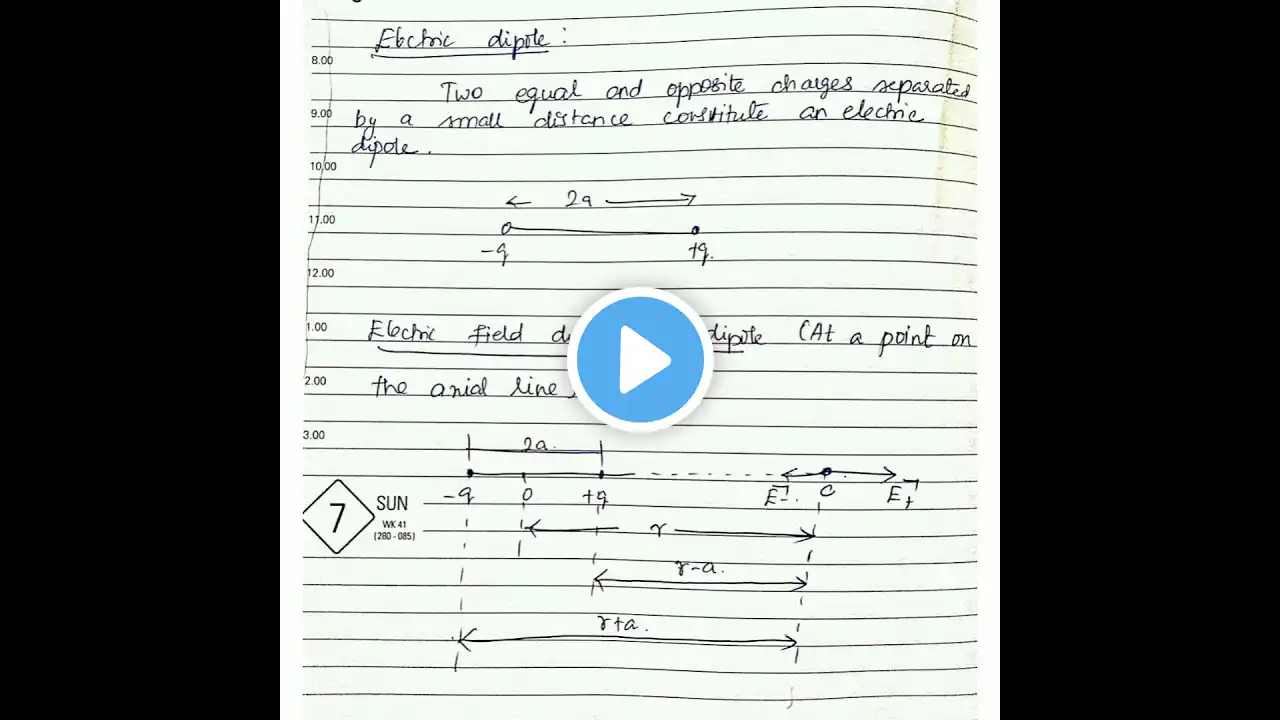 Electric dipole :
8.00
Two equal and opposite charges separated
9.00 by a small distance constitute an electric
dipole.
10.00
← 2a →
11.00
-q +q.
12.00
1.00 Electric field d dipole (At a point on
2.00 the axial line
3.00
2a.
-q O +q E-. C E+
7 SUN
WK 41
(280 - 085)
r
r-a.
r+a.